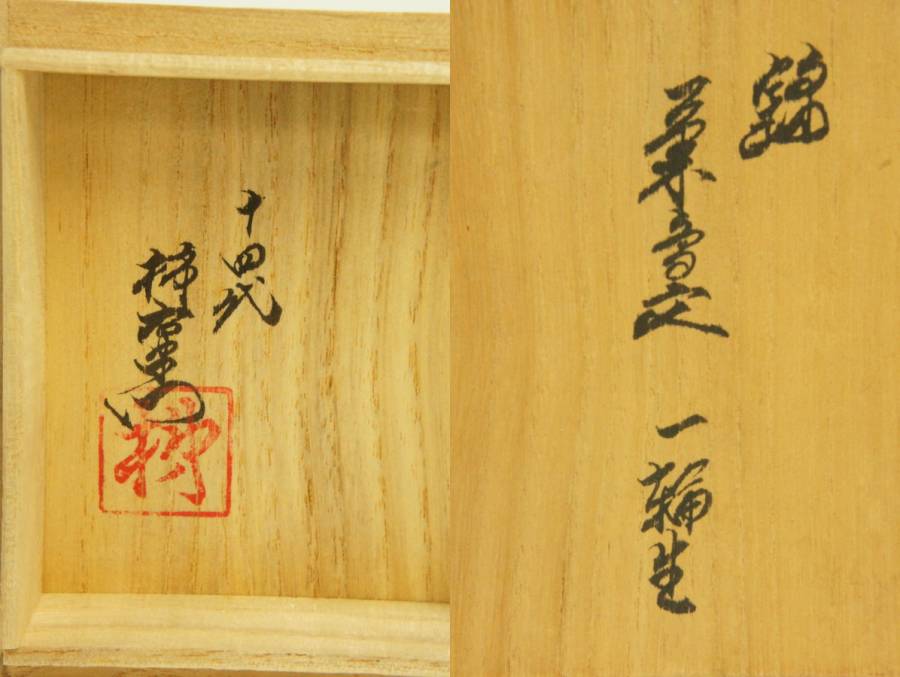 十四代
柿右衛門
柿
錦
一輪生